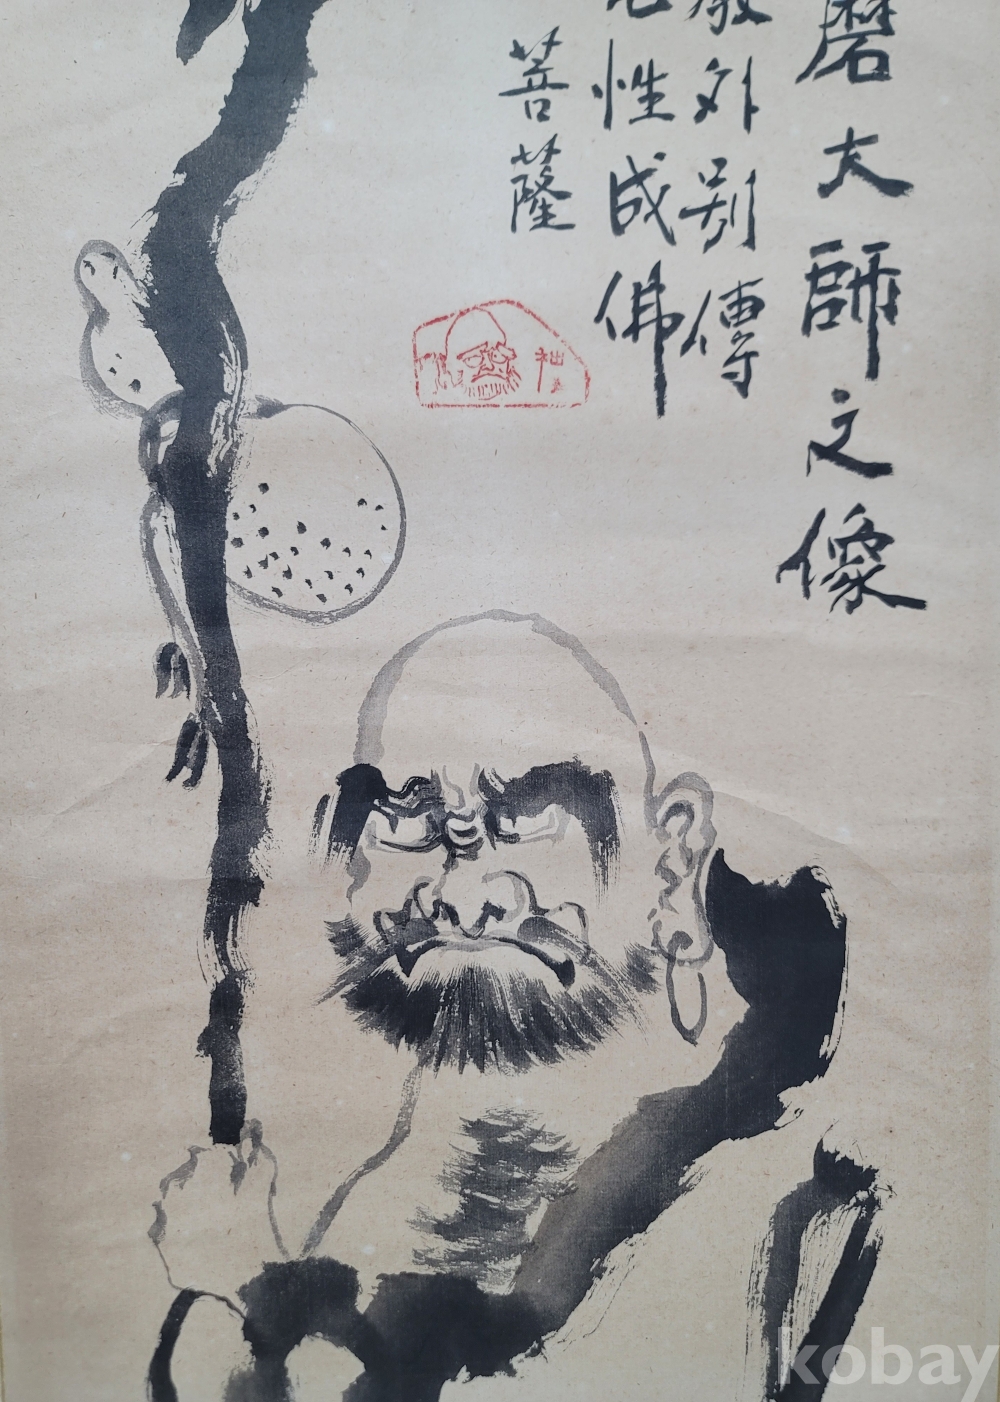 磨大師之像
教外別傳
性成佛
菩薩
kobay